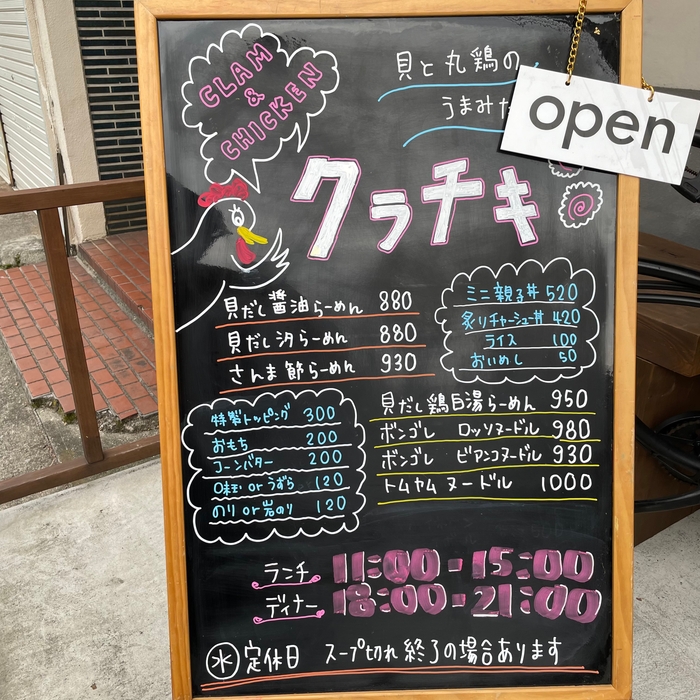 CLAM
&
CHICKEN
貝と丸鶏の
うまみた
open
クラチキ
貝だし醤油らーめん 880
貝だし汐らーめん 880
さんま節らーめん 930
ミニ親子丼 520
炙りチャーシュー丼 420
ライス 100
おいめし 50
貝だし鶏白湯らーめん 950
ボンゴレ ロッソヌードル 980
ボンゴレ ビアンコヌードル 930
トムヤムヌードル 1000
特製トッピング 300
おもち 200
コーンバター 200
味玉 or うずら 120
のり or 岩のり 120
ランチ 11:00-15:00
ディナー 18:00-21:00
㊌定休日 スープ切れ終了の場合あります